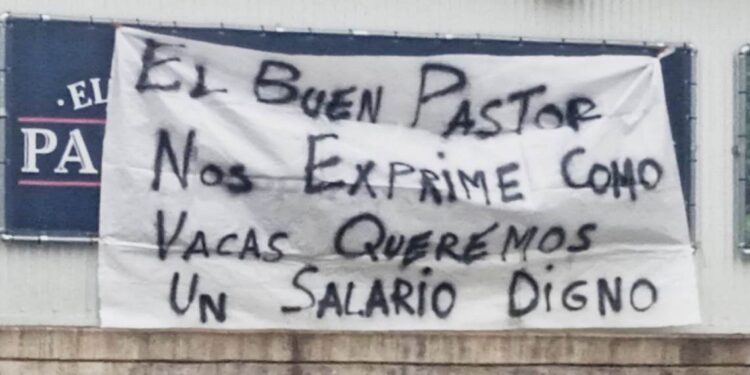 · EL
PA
EL BUEN PASTOR
NOS EXPRIME COMO
VACAS QUEREMOS
UN SALARIO DIGNO